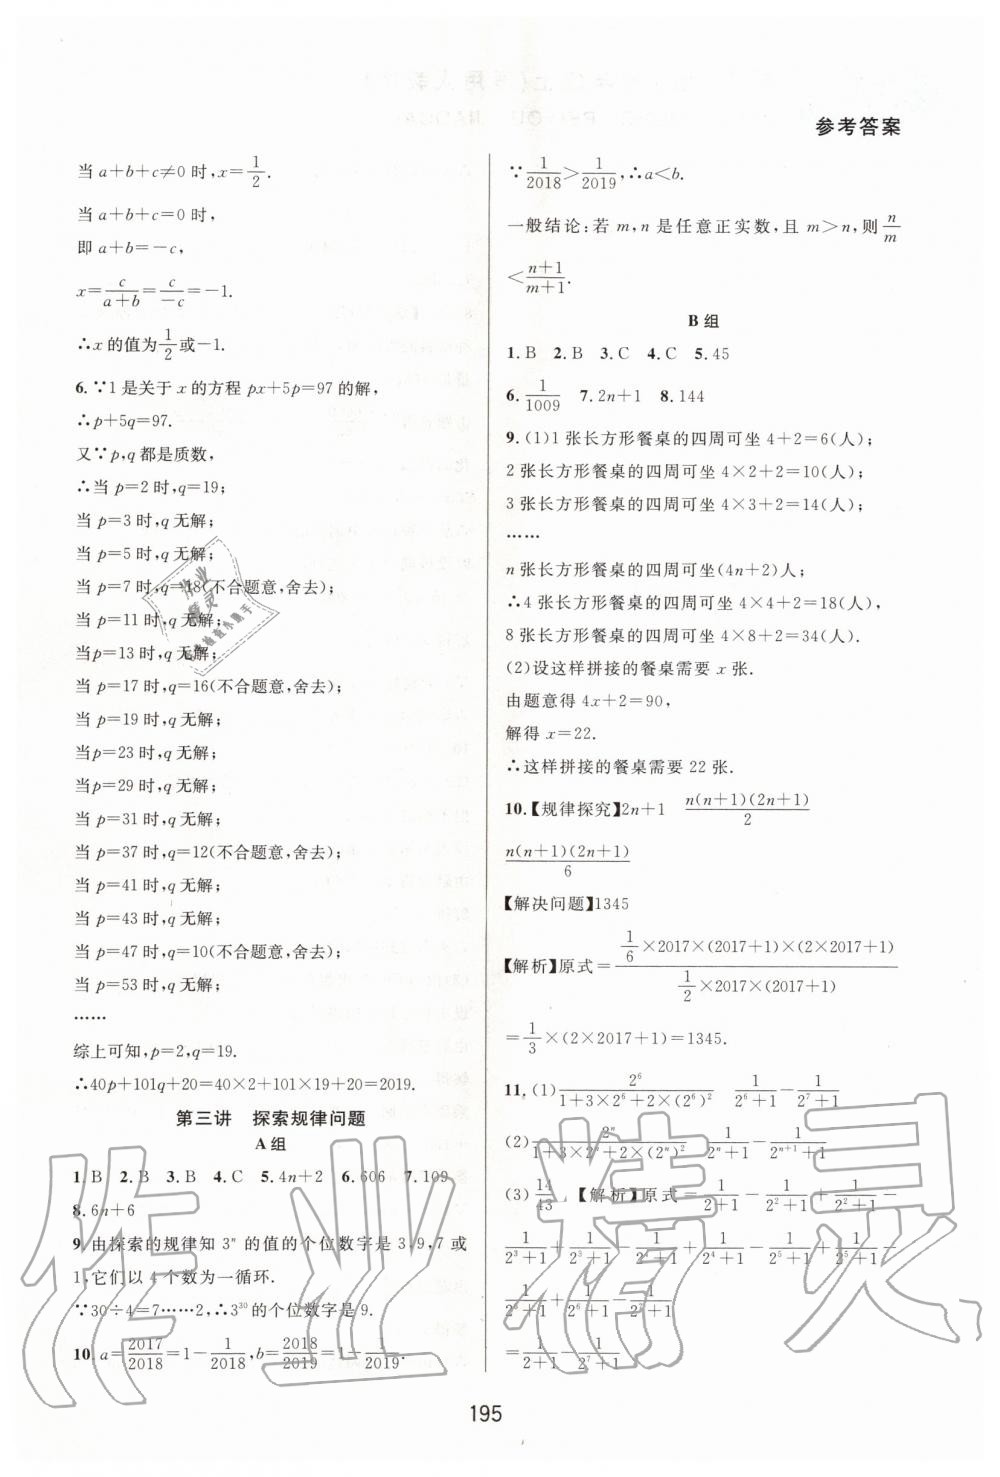 参考答案
当 a+b+c≠0 时,x=1/2.
当 a+b+c=0 时,
即 a+b=-c,
x=c/(a+b)=c/(-c)=-1.
∴x 的值为1/2或-1.
6.∵1 是关于 x 的方程 px+5p=97 的解,
∴p+5q=97.
又∵p,q 都是质数,
∴当 p=2 时,q=19;
当 p=3 时,q 无解;
当 p=5 时,q 无解;
当 p=7 时,q=18(不合题意,舍去);
当 p=11 时,q 无解;
当 p=13 时,q 无解;
当 p=17 时,q=16(不合题意,舍去);
当 p=19 时,q 无解;
当 p=23 时,q 无解;
当 p=29 时,q 无解;
当 p=31 时,q 无解;
当 p=37 时,q=12(不合题意,舍去);
当 p=41 时,q 无解;
当 p=43 时,q 无解;
当 p=47 时,q=10(不合题意,舍去);
当 p=53 时,q 无解;
……
综上可知,p=2,q=19.
∴40p+101q+20=40×2+101×19+20=2019.
第三讲 探索规律问题
A 组
1.B 2.B 3.B 4.C 5.4n+2 6.606 7.109
8.6n+6
9.由探索的规律知 3ⁿ 的值的个位数字是 3,9,7 或
1,它们以 4 个数为一循环.
∵30÷4=7……2,∴3³⁰ 的个位数字是 9.
10.a=2017/2018=1-1/2018,b=2018/2019=1-1/2019.
∵1/2018>1/2019,∴a<b.
一般结论:若 m,n 是任意正实数,且 m>n,则 n/m
<(n+1)/(m+1).
B 组
1.B 2.B 3.C 4.C 5.45
6.1/1009 7.2n+1 8.144
9.(1)1 张长方形餐桌的四周可坐 4+2=6(人);
2 张长方形餐桌的四周可坐 4×2+2=10(人);
3 张长方形餐桌的四周可坐 4×3+2=14(人);
……
n 张长方形餐桌的四周可坐(4n+2)人;
∴4 张长方形餐桌的四周可坐 4×4+2=18(人),
8 张长方形餐桌的四周可坐 4×8+2=34(人).
(2)设这样拼接的餐桌需要 x 张.
由题意得 4x+2=90,
解得 x=22.
∴这样拼接的餐桌需要 22 张.
10.【规律探究】2n+1 n(n+1)(2n+1)/2
n(n+1)(2n+1)/6
【解决问题】1345
【解析】原式=(1/6×2017×(2017+1)×(2×2017+1))/(1/2×2017×(2017+1))
=1/3×(2×2017+1)=1345.
11.(1)2⁶/(1+3×2⁶+2×(2⁶)²) 1/(2⁶+1)-1/(2⁷+1)
(2)2ⁿ/(1+3×2ⁿ+2×(2ⁿ)²) 1/(2ⁿ+1)-1/(2ⁿ⁺¹+1)
(3)14/43 【解析】原式=1/(2+1)-1/(2²+1)+1/(2²+1)-
1/(2³+1)+1/(2³+1)-1/(2⁴+1)+1/(2⁴+1)-1/(2⁵+1)+1/(2⁵+1)-
1/(2⁶+1)+1/(2⁶+1)-1/(2⁷+1)
=1/(2+1)-1/(2⁷+1)
195
作业精灵